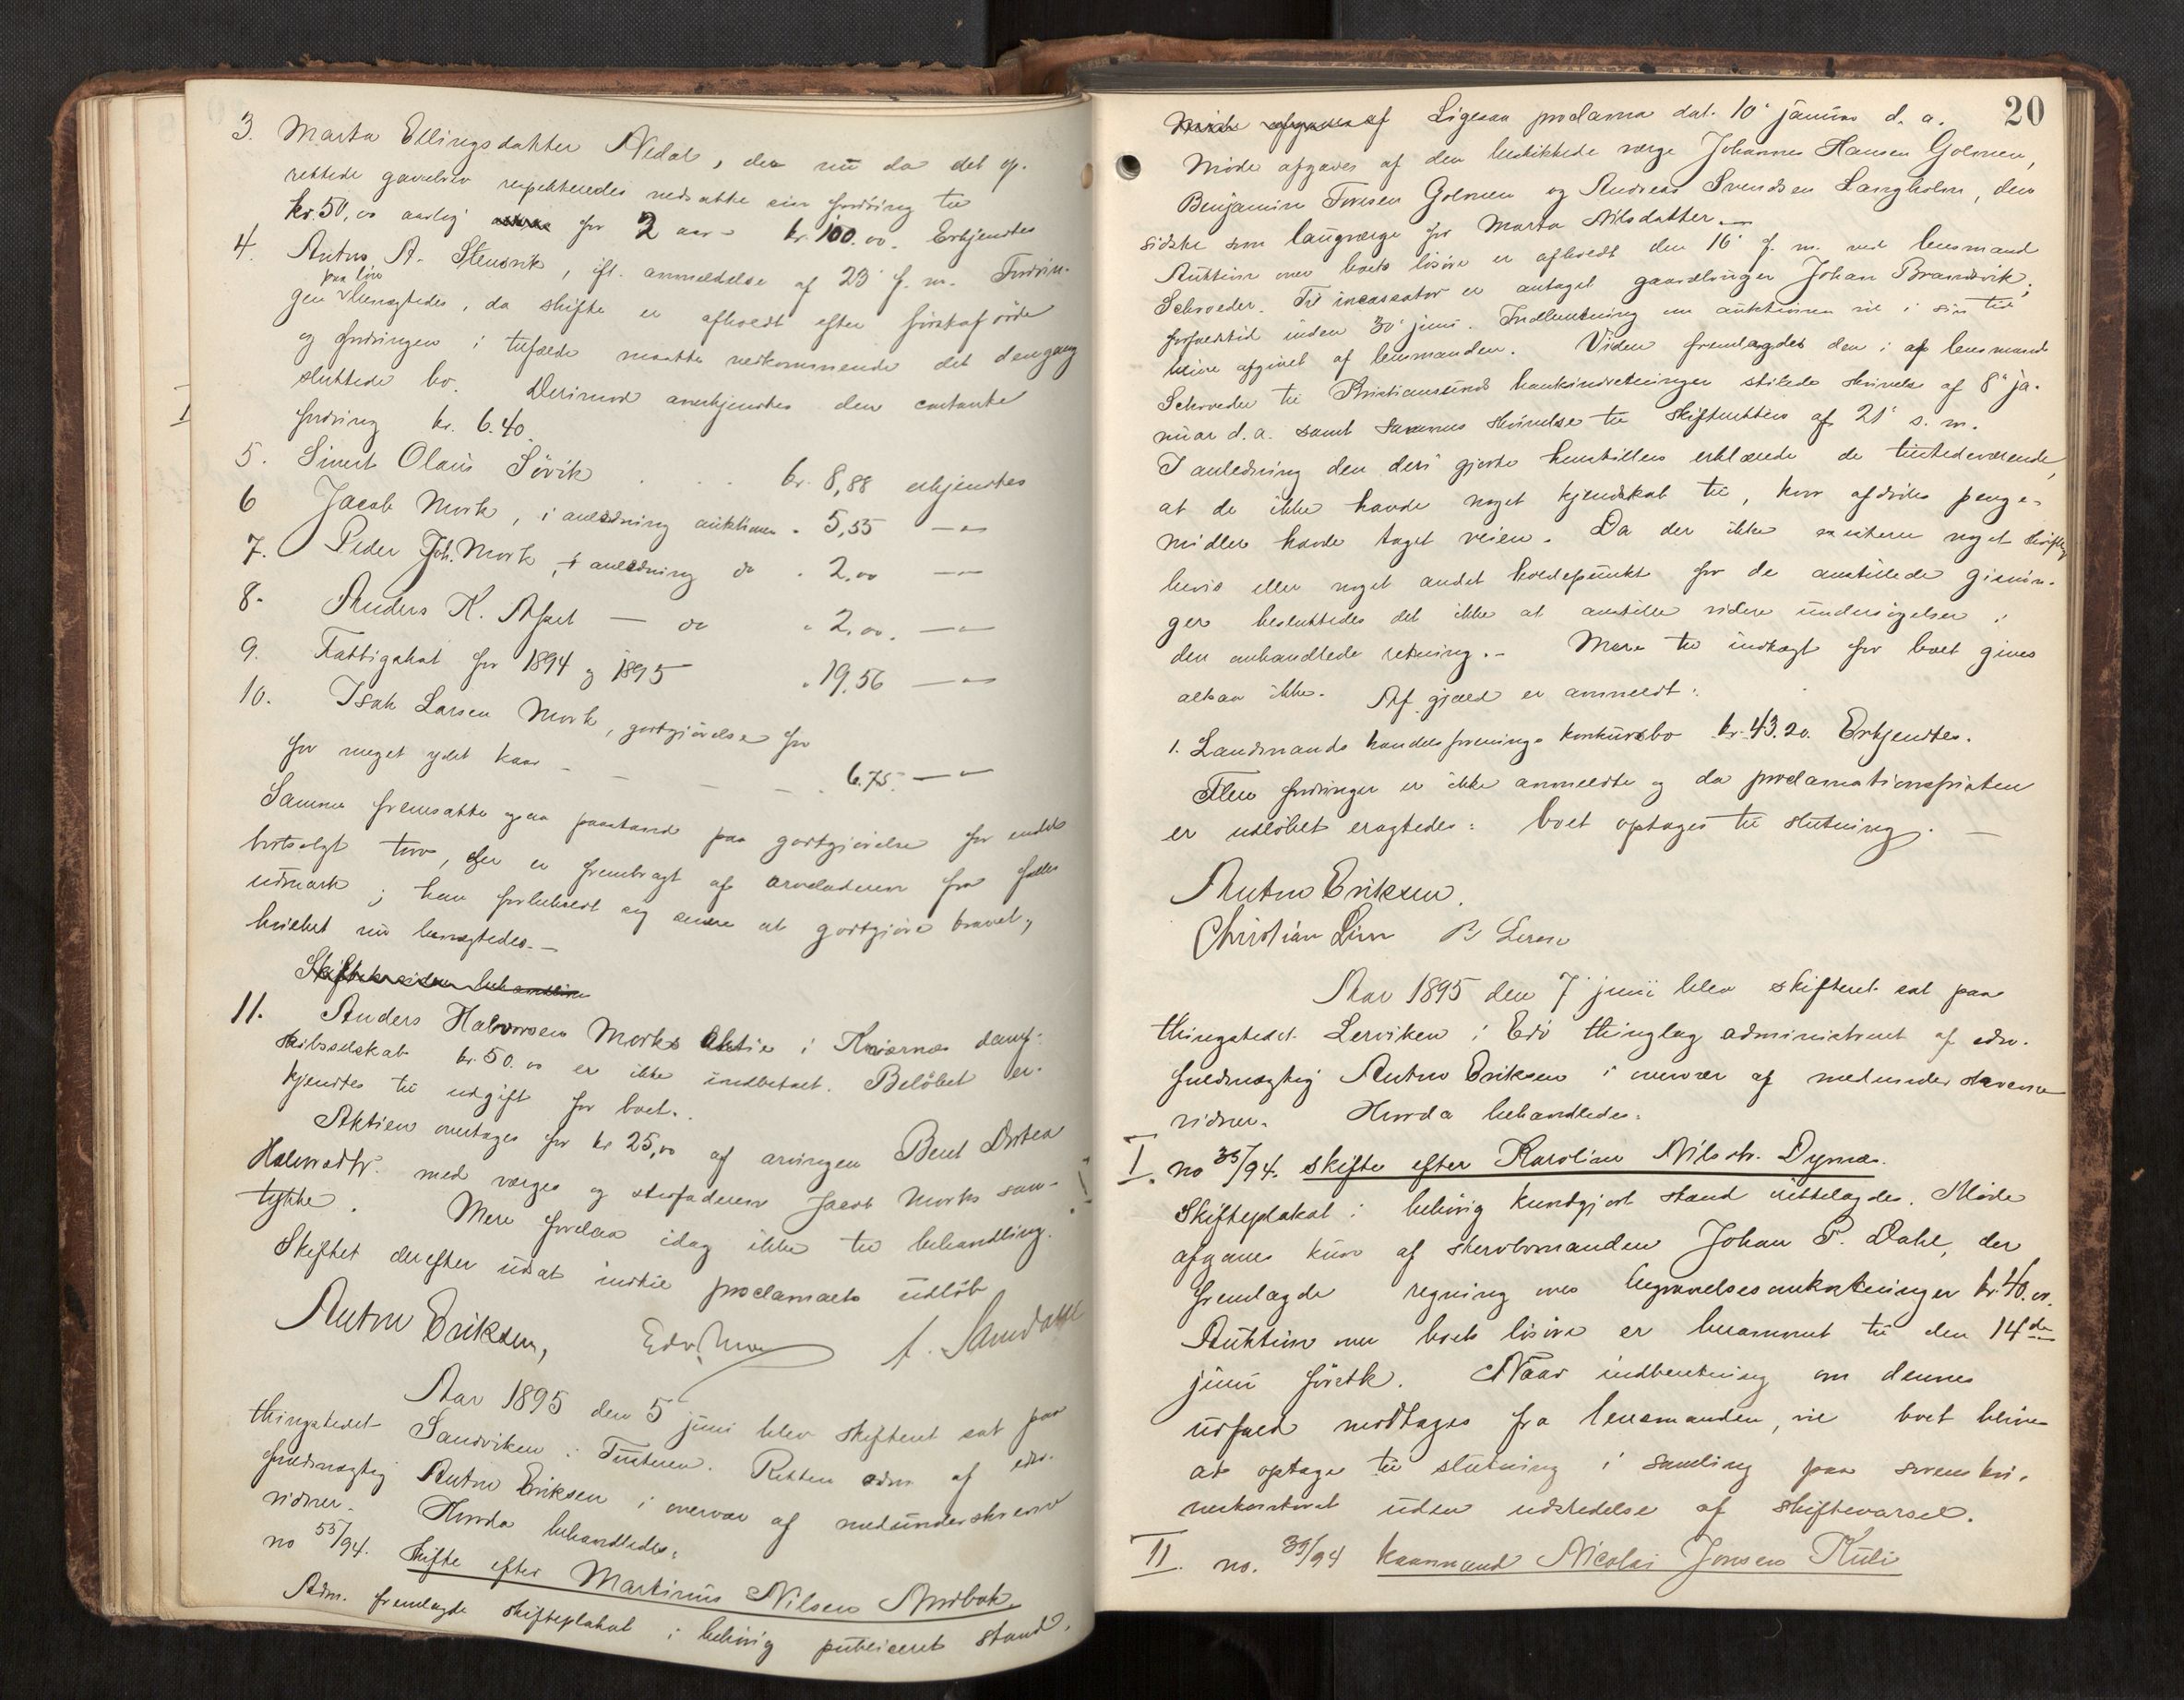 3. Marta Ellingsdatter Nedal, der nu da det op-
rettede gavebrev respekteredes nedsatte sin fordring til
kr. 50,00 aarlig for 2 aar = kr. 100.00. Erkjendtes
4. Anton A. Stensvik, ifl. anmeldelse af 23' f. m. Fordrin-
paa løv
gen benegtedes, da skifte er afholdt efter
og fordringen i tilfælde maatte vedkommende det dengang
sluttede bo. Derimod anerkjendtes den contante
fordring kr. 6.40.
5. Sivert Olaus Sövik . . . kr. 8,88 erkjendtes
6 Jacob Mork, i anledning auktionen " 5,55 — " —
7. Peder Joh. Mork, i anledning do " 2,00 — " —
8. Anders K. Aspet — do " 2,00. — " —
9. Fattigskat for 1894 og 1895 " 19,56 — " —
10. Isak Larsen Mork, godtgjörelse for
for meget ydet kaar — — — — " 6.75. — " —
Samme fremsatte ogsaa paastand paa godtgjörelse for endel
bortsolgt torv, der er frembragt af arveladeren fra fælles
udmark; han forbeholdt sig senere at godtgjöre kravet,
hvilket nu benegtedes. —
11. Anders Halvorsen Morks Aktie i Kværnæs damp-
skibsselskab kr. 50.00 er ikke indbetalt. Belöbet er-
kjendtes til udgift for boet.
Aktien overtages for kr 25,00 af arvingen Berit
Halvordtr. med værges og stedfaderen Jacob Morks sam-
tykke. Mere forelaa idag ikke til behandling.
Skiftet derefter udsat indtil proclamaets udlöb
Anton Eriksen,
Aar 1895 den 5' juni blev skifteret sat paa
thingstedet Sandviken i Tusteren. Retten adm. af edsv.
fuldmægtig Anton Eriksen i overvær af medunderskrevne
vidner. Hvorda behandledes:
no 55/94. Skifte efter Martinus Nilsen
Adm. fremlagde skifteplakat i behörig publiceret stand.
20
Ligesaa proclama dat. 10' januar d. a.
Möde afgaves af den beskikkede værge Johannes Hansen Golmen,
Benjamin Toresen Golmen og Andreas Svendsen Langholm, den
sidste som laugværge for Marta Nilsdatter. —
Auktion over boets lösöre er afholdt den 16' f. m. ved lensmand
Schroeder. Til incassator er antaget gaardbruger Johan Brandsvik;
forfaldstid inden 30' juni. Indberetning om auktionen vil i sin tid
blive afgivet af lensmanden. Videre fremlagdes den af lensmand
Schroeder til Kristiansunds bankindretninger stilede skrivelse af 8' ja-
nuar d. a. samt sammes skrivelse til skifteretten af 21' s. m.
I anledning den deri gjorte henstillen erklærede de tilstedeværende,
at de ikke havde noget kjendskab til, hvor afdödes penge-
midler havde taget veien. Da der ikke existerer noget skriftlig
bevis eller noget andet holdepunkt for de anstillede gisnin-
ger besluttedes det ikke at anstille videre undersögelser i
den omhandlede retning. — Mere til indtægt for boet gives
altsaa ikke. Af gjæld er anmeldt:
1. Landmands handelsforenings konkursbo kr. 43.20. Erkjendtes.
Flere fordringer er ikke anmeldte og da proclamationsfristen
er udlöbet eragtedes: boet optages til slutning. —
Anton Eriksen.
Christian
Aar 1895 den 7' juni blev skifteret sat paa
thingstedet Lerviken i Edö thinglag administreret af edsv.
fuldmægtig Anton Eriksen i overvær af medunderskrevne
vidner. Hvorda behandledes:
I. no 35/94. Skifte efter Karoline Nilsdtr. Dyrnæs.
Skifteplakat i behörig kundgjort stand irettelagdes. Möde
afgaves kun af stervbomanden Johan P. Dahl, der
fremlagde regning over begravelsesomkostninger kr. 40.00.
Auktion over boets lösöre er berammet til den 14de
juni förstk. Naar indberetning om dennes
udfald modtages fra lensmanden, vil boet blive
at optage til slutning i samling paa sorenskri-
verkontoret uden udstedelse af skiftevarsel.
II. no. 39/94 kaarmand Nicolai Jonsen Kuli